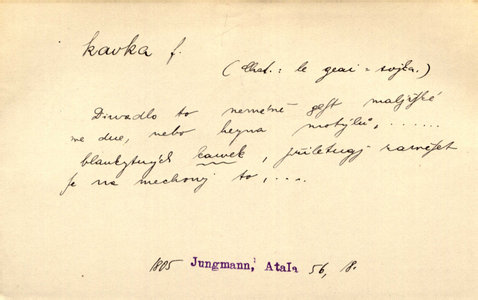 kavka f.
(Chat.: le geai = sojka.)
Diwadlo to neméně gest
we dne, nebo heyna motýlů, ......
blankytných kawek, přiletugj
se na mechowý to, ....
1805 Jungmann, Atala 56, 18.